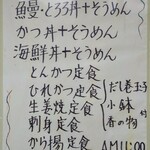 鰻・とろろ丼+そうめん
かつ丼+そうめん
海鮮丼+そうめん
とんかつ定食
ひれかつ定食
生姜焼定食
刺身定食
から揚定食
だし巻玉子
小鉢
香の物
付
AM11:00